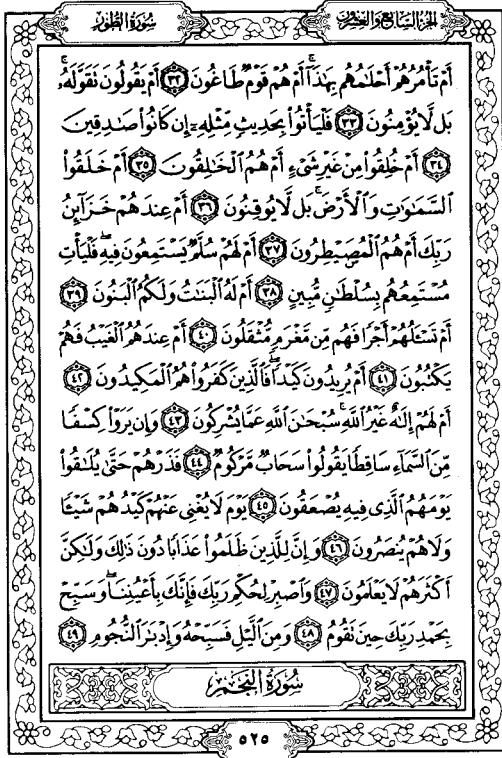 سُورَةُ الطُّورِ
الجُزءُ السَّابِعُ وَالعِشْرُونَ
أَمْ تَأْمُرُهُمْ أَحْلَٰمُهُم بِهَٰذَآ ۚ أَمْ هُمْ قَوْمٌ طَاغُونَ ٣٢ أَمْ يَقُولُونَ تَقَوَّلَهُۥ ۚ
بَل لَّا يُؤْمِنُونَ ٣٣ فَلْيَأْتُوا۟ بِحَدِيثٍ مِّثْلِهِۦٓ إِن كَانُوا۟ صَٰدِقِينَ
٣٤ أَمْ خُلِقُوا۟ مِنْ غَيْرِ شَىْءٍ أَمْ هُمُ ٱلْخَٰلِقُونَ ٣٥ أَمْ خَلَقُوا۟
ٱلسَّمَٰوَٰتِ وَٱلْأَرْضَ ۚ بَل لَّا يُوقِنُونَ ٣٦ أَمْ عِندَهُمْ خَزَآئِنُ
رَبِّكَ أَمْ هُمُ ٱلْمُصَۣيْطِرُونَ ٣٧ أَمْ لَهُمْ سُلَّمٌ يَسْتَمِعُونَ فِيهِ ۖ فَلْيَأْتِ
مُسْتَمِعُهُم بِسُلْطَٰنٍ مُّبِينٍ ٣٨ أَمْ لَهُ ٱلْبَنَٰتُ وَلَكُمُ ٱلْبَنُونَ ٣٩
أَمْ تَسْـَٔلُهُمْ أَجْرًا فَهُم مِّن مَّغْرَمٍ مُّثْقَلُونَ ٤٠ أَمْ عِندَهُمُ ٱلْغَيْبُ فَهُمْ
يَكْتُبُونَ ٤١ أَمْ يُرِيدُونَ كَيْدًا ۖ فَٱلَّذِينَ كَفَرُوا۟ هُمُ ٱلْمَكِيدُونَ ٤٢
أَمْ لَهُمْ إِلَٰهٌ غَيْرُ ٱللَّهِ ۚ سُبْحَٰنَ ٱللَّهِ عَمَّا يُشْرِكُونَ ٤٣ وَإِن يَرَوْا۟ كِسْفًا
مِّنَ ٱلسَّمَآءِ سَاقِطًا يَقُولُوا۟ سَحَابٌ مَّرْكُومٌ ٤٤ فَذَرْهُمْ حَتَّىٰ يُلَٰقُوا۟
يَوْمَهُمُ ٱلَّذِى فِيهِ يُصْعَقُونَ ٤٥ يَوْمَ لَا يُغْنِى عَنْهُمْ كَيْدُهُمْ شَيْـًٔا
وَلَا هُمْ يُنصَرُونَ ٤٦ وَإِنَّ لِلَّذِينَ ظَلَمُوا۟ عَذَابًا دُونَ ذَٰلِكَ وَلَٰكِنَّ
أَكْثَرَهُمْ لَا يَعْلَمُونَ ٤٧ وَٱصْبِرْ لِحُكْمِ رَبِّكَ فَإِنَّكَ بِأَعْيُنِنَا ۖ وَسَبِّحْ
بِحَمْدِ رَبِّكَ حِينَ تَقُومُ ٤٨ وَمِنَ ٱلَّيْلِ فَسَبِّحْهُ وَإِدْبَٰرَ ٱلنُّجُومِ ٤٩
سُورَةُ النَّجْمِ
٥٢٥